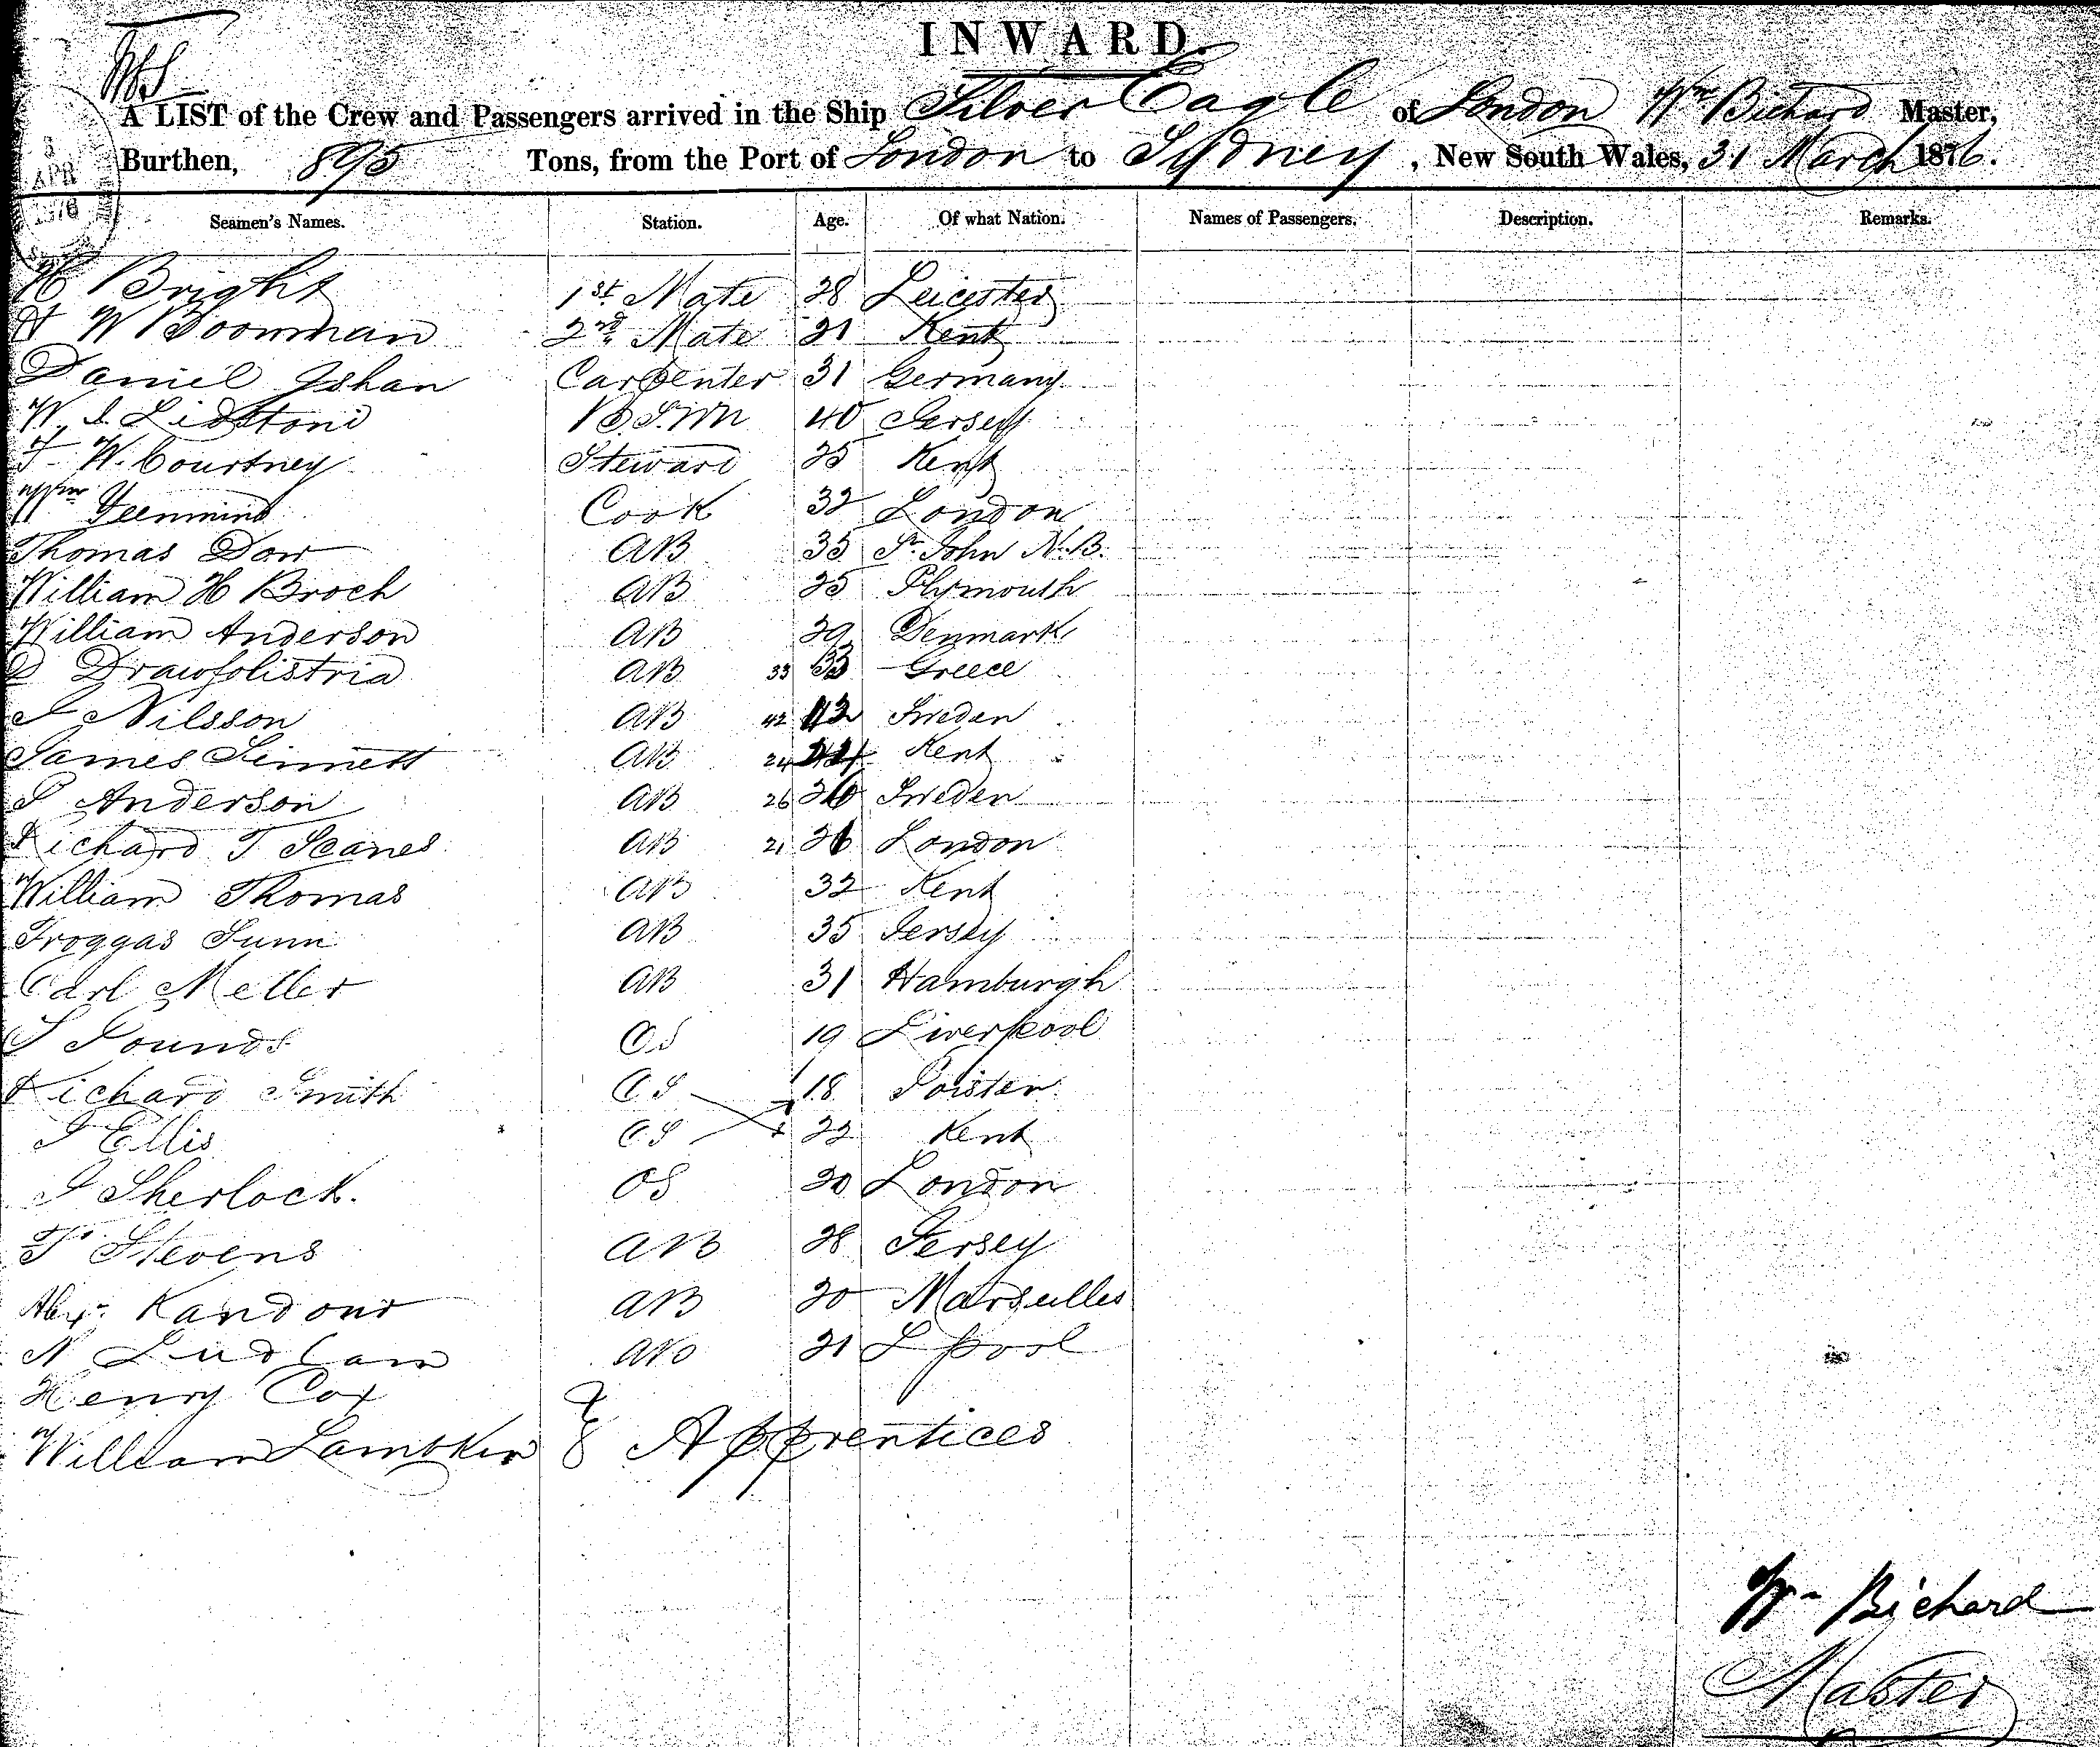 INWARD.
A LIST of the Crew and Passengers arrived in the Ship Silver Eagle of London Wm Bichard Master,
Burthen, 895 Tons, from the Port of London to Sydney, New South Wales, 31 March 1876.
3
APR
1876
Seamen's Names. Station. Age. Of what Nation. Names of Passengers. Description. Remarks.
H Bright 1st Mate 28 Leicester
W Boorman 2nd Mate 21 Kent
Daniel Ishan Carpenter 31 Germany
W. I. Lidstone B.S.Mn 40 Jersey
F W. Courtney Steward 25 Kent
Wm Cook 32 London
Thomas Dow AB 35 St. John N.B.
William H Broch AB 25 Plymouth
William Anderson AB 29 Denmark
D AB 33 33 Greece
I Nilsson AB 42 42 Sweden
James Sinnett AB 24 24 Kent
P Anderson AB 26 26 Sweden
Richard T Scanes AB 21 21 London
William Thomas AB 32 Kent
Froggas Sunn AB 35 Jersey
Carl Meller AB 31 Hamburgh
S Pounds OS 19 Liverpool
Richard Smith OS 18
I Ellis OS 22 Kent
I Sherlock. OS 20 London
T Stevens AB 28 Jersey
Alex. Kandour AB 20 Marseilles
N Ludlam AB 21 L pool
Henry Cox
William Lambkin & Apprentices
Wm Bichard
Master